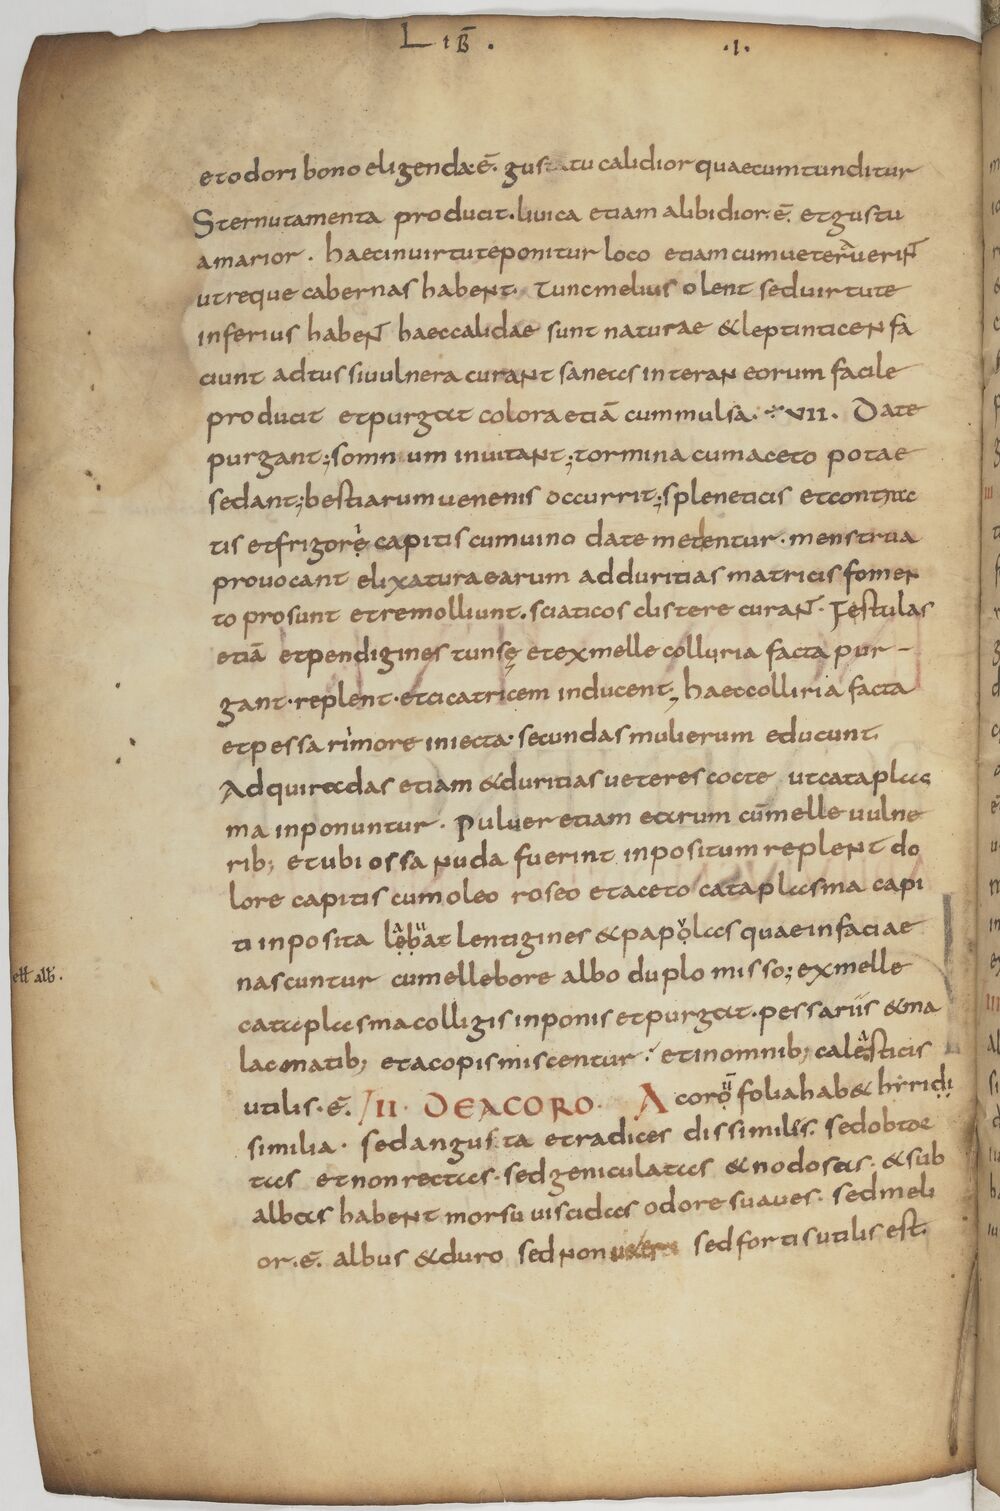 LIB̄. .I.
et odori bono eligenda. ē. gustatu calidior quae cum tunditur
Sternutamenta producit. livica etiam alibidior. ē. et gustu
amarior. haec in virtute ponitur loco etiam cum veteraverint
utreque cabernas habent. Tunc melius olent sed virtute
inferius habent haec calidae sunt naturae & leptinticen fa
ciunt ad tussi vulnera curant saneas interaneorum facile
producit et purgat colora etiā cum mulsa. VII. Date
purgant; somnum invitant; tormina cum aceto potae
sedant; bestiarum venenis occurrit; spleneticis et contrac
tis et frigore capitis cum vino date medentur. menstrua
provocant elixatura earum ad duritias matricis fomen
to prosunt et remolliunt. sciaticos clistere curant. Festulas
etiā et pendigines tunsę et ex melle colluria facta pur-
gant. replent. et cicatricem inducent; haec colliria facta
et pessari more iniecta. secundas mulierum educunt.
Ad quiradas etiam & duritias veteres cocte ut cataplas
ma inponuntur. Pulver etiam earum cū melle vulne
rib; et ubi ossa nuda fuerint inpositum replent do
lore capitis cum oleo roseo et aceto cataplasma capi
ti inposita lębat lentigines & papolas quae in faciae
nascuntur cum ellebore albo duplo misso; ex melle
ell alb.
cataplasma colligis inponis et purgat. pessariis & ma
lacmatib; et acopis miscentur. et in omnib; calasticis
utilis. ē. II. DE ACORO. Acorū folia hab& hiridi
similia. sed angusta et radices dissimiles. sed obtor
tas et non rectas. sed geniculatas & nodosas. & sub
albas habent morsu viscidas odore suaves. sed meli
or. ē. albus & duro sed non sed fortis utilis est.